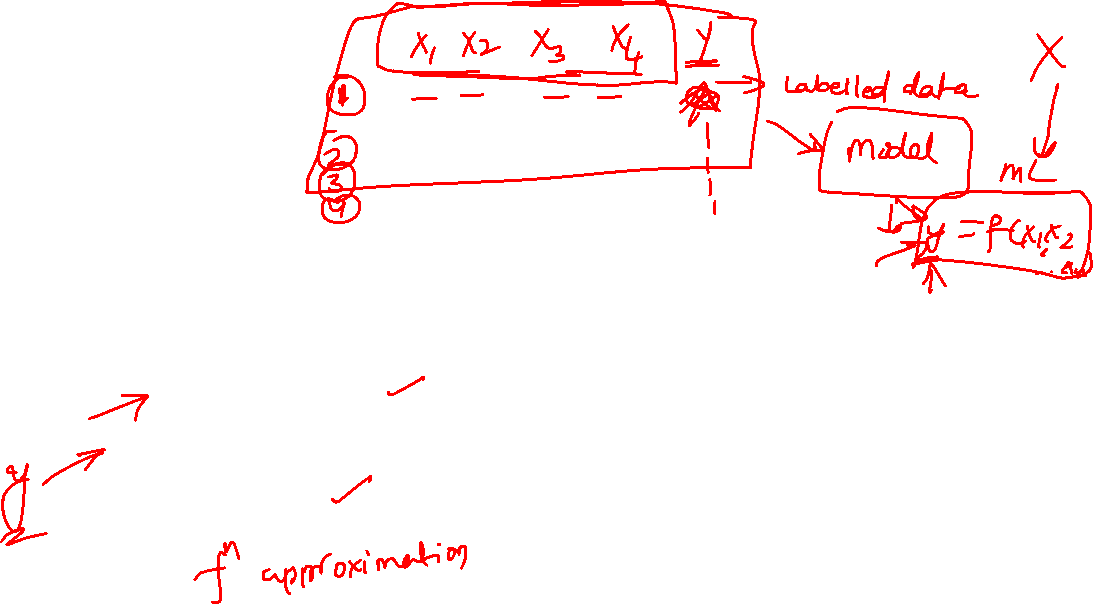 X1 X2 X3 X4 Y
1
Labelled data
X
2
model
3
mL
4
y = f(x1, x2
y
fⁿ approximation